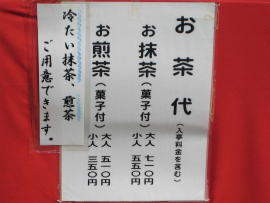 お茶代
(入亭料金を含む)
お抹茶(菓子付)
大人 七一〇円
小人 五五〇円
お煎茶(菓子付)
大人 五一〇円
小人 三五〇円
冷たい抹茶、煎茶
ご用意できます。